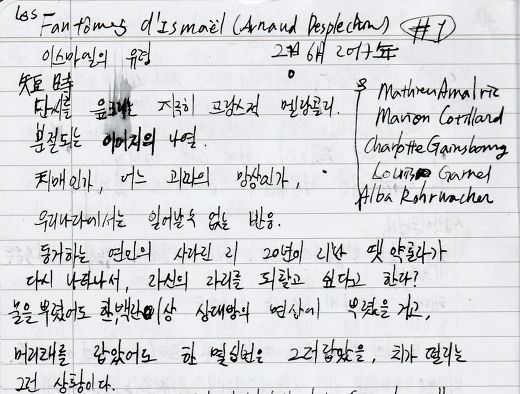 Les Fantômes d'Ismaël (Arnaud Desplechin) #1
이스마엘의 유령 2017年
Mathieu Amalric
Marion Cotillard
Charlotte Gainsbourg
Louis Garrel
Alba Rohrwacher
短 時
단시를 읊조리는 지극히 프랑스적 멜랑콜리.
분절되는 이미지의 나열.
치매인가, 어느 괴짜의 망상인가,
우리나라에서는 일어날 수 없는 반응.
동거하는 연인의 사라진 지 20년이 지난 옛 약혼자가
다시 나타나서, 자신의 자리를 되찾고 싶다고 한다?
물을 뿌렸어도 한, 백만 이상 상대방의 면상에 뿌렸을 거고,
머리채를 잡았어도 한 열 십번은 그러잡았을, 치가 떨리는
그런 상황이다.